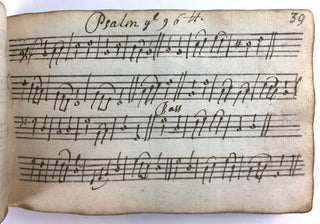 Psalm yᵉ 96th. 39
Bass